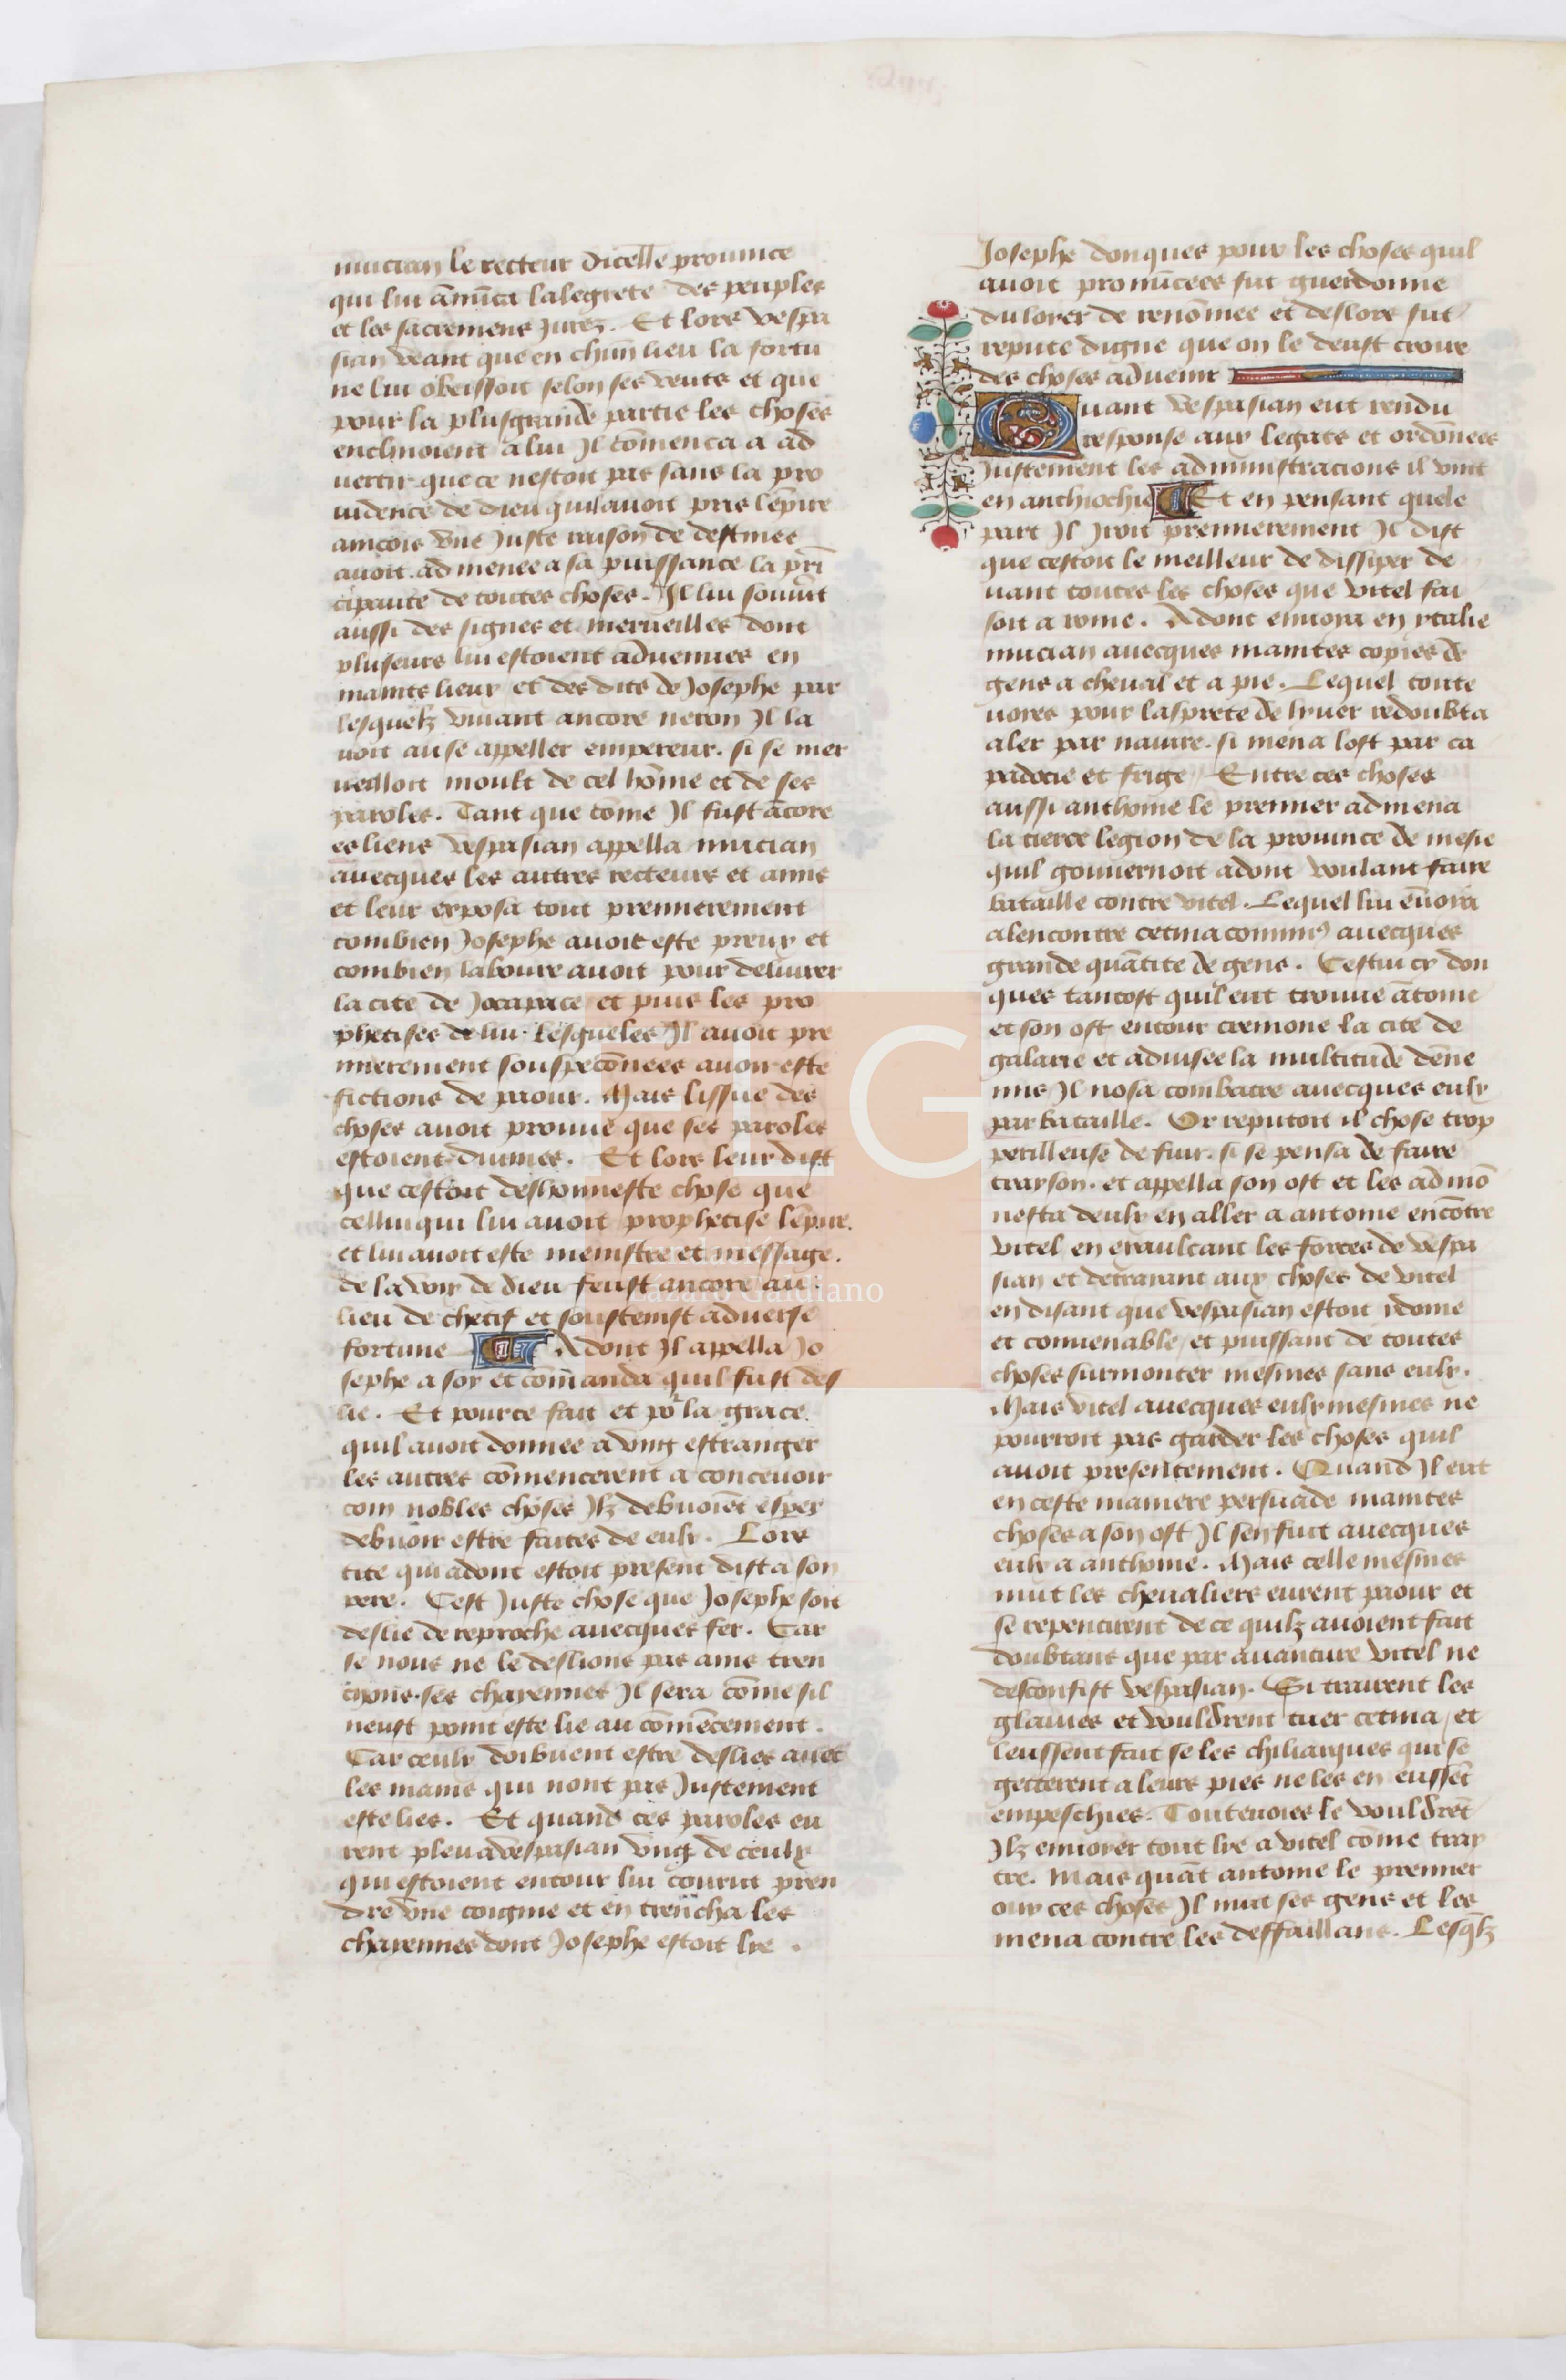 mucian le recteur dicelle prouince
qui lui anūca lalegrete des peuples
et les sacremens Jurez. Et lors vespa
sian veant que en chūn lieu la fortu
ne lui obeissoit selon ses veuts et que
pour la plusgrande partie les choses
enclinoient a lui Il cōmenca a ad
uertir que ce nestoit pas sans la pro
uidence de dieu quil auoit pris lēpire
aincois vne Juste raison de destinee
auoit admenee a sa puissance la prī
cipaute de toutes choses. Il lui souuīt
aussi des signes et merueilles dont
pluseurs lui estoient aduenues en
maints lieux et des dits de Josephe par
lesquelz viuant ancore neron Il la
uoit ause appeller empereur. si se mer
ueilloit moult de cel hōme et de ses
paroles. Tant que cōme Il fust ācore
es liens vespasian appella mucian
auecques les autres recteurs et amis
et leur exposa tout premierement
combien Josephe auoit este preux et
combien laboure auoit pour deliurer
la cite de Jocapace et puis les pro
phecises de lui. Lesqueles Il auoit pre
mierement souspeconnees auoir este
fictions de paour. Mais lissue des
choses auoit prouue que ses paroles
estoient diuines. Et lors leur dist
que cestoit deshonneste chose que
cellui qui lui auoit prophetise lēpire.
et lui auoit este menistre et message.
de la voix de dieu feust ancore au.
lieu de chetif et soustenist aduerse
fortune Adont Il appella Jo
sephe a soy et cōmanda quil fust des
lie. Et pource fait et por la grace
quil auoit donnee a vng estranger
les autres cōmencerent a conceuoir
com nobles choses Ilz debuoiēt esper
debuoir estre faites de eulx. Lors
tite qui adont estoit present dist a son
pere. Cest Juste chose que Josephe soit
deslie de reproche auecques fer. Car
se nous ne le deslions pas ains tren
chons ses chayennes Il sera cōme sil
neust point este lie au cōmēcement.
Car ceulx doibuent estre deslies auec
les mains qui nont pas Justement
este lies. Et quand ces paroles eu
rent pleu a vespasian vng de ceulx
qui estoient entour lui courut pren
dre vne coignie et en trencha les
chayennes dont Josephe estoit lye.
Josephe donques pour les choses quil
auoit pronūcees fut guerdonne
du lorer de renōmee et deslors fut
repute digne que on le deust croire
des choses aduenir
Quant vespasian eut rendu
response aux legats et ordōnees
Justement les administracions il vint
en anthiochie Et en pensant quele
part Il Iroit premierement Il dist
que cestoit le meilleur de dissiper de
uant toutes les choses que vitel fai
soit a rome. Adont enuoya en ytalie
mucian auecques maintes copies de
gens a cheual et a pie. Lequel toute
uoies pour lasprete de lyuer redoubta
aler par nauire. si mena lost par ca
padocie et frige Entre ces choses
aussi anthoine le premier admena
la tierce legion de la prouince de mesie
quil gouuernoit adont voulant faire
bataille contre vitel. Lequel lui ēuoia
alencontre cetina comm9 auecques
grande quātite de gens. Cestui cy don
ques tantost quil eut trouue ātoine
et son ost entour cremone la cite de
galacie et aduisee la multitude dēne
mis Il nosa combatre auecques eulx
par bataille. Or reputoit il chose trop
perilleuse de fuir. si se pensa de faire
trayson. et appella son ost et les admō
nesta deulx en aller a antoine encōtre
vitel en exaultant les forces de vespa
sian et detraiant aux choses de vitel
en disant que vespasian estoit ydoine
et conuenable et puissant de toutes
choses surmonter mesmes sans eulx.
Mais vitel auecques eulx mesmes ne
pourroit pas garder les choses quil
auoit presentement. Quand Il eut
en ceste maniere persuade maintes
choses a son ost Il sen fuit auecques
eulx a anthoine. Mais celle mesmes
nuit les cheualiers eurent paour et
se repentirent de ce quilz auoient fait
doubtans que par auanture vitel ne
desconfist vespasian. Si trairent les
glaiues et vouldrent tuer cetina et
leussent fait se les chiliarques qui se
getterent a leurs pies ne les en eussēt
empeschies. Toutenoies le vouldrēt
Ilz enuoier tout lye a vitel cōme tray
tre. Mais quāt antoine le premier
ouy ces choses Il mut ses gens et les
mena contre les deffaillans. Lesq̄lz
FLG
Lázaro Galdiano